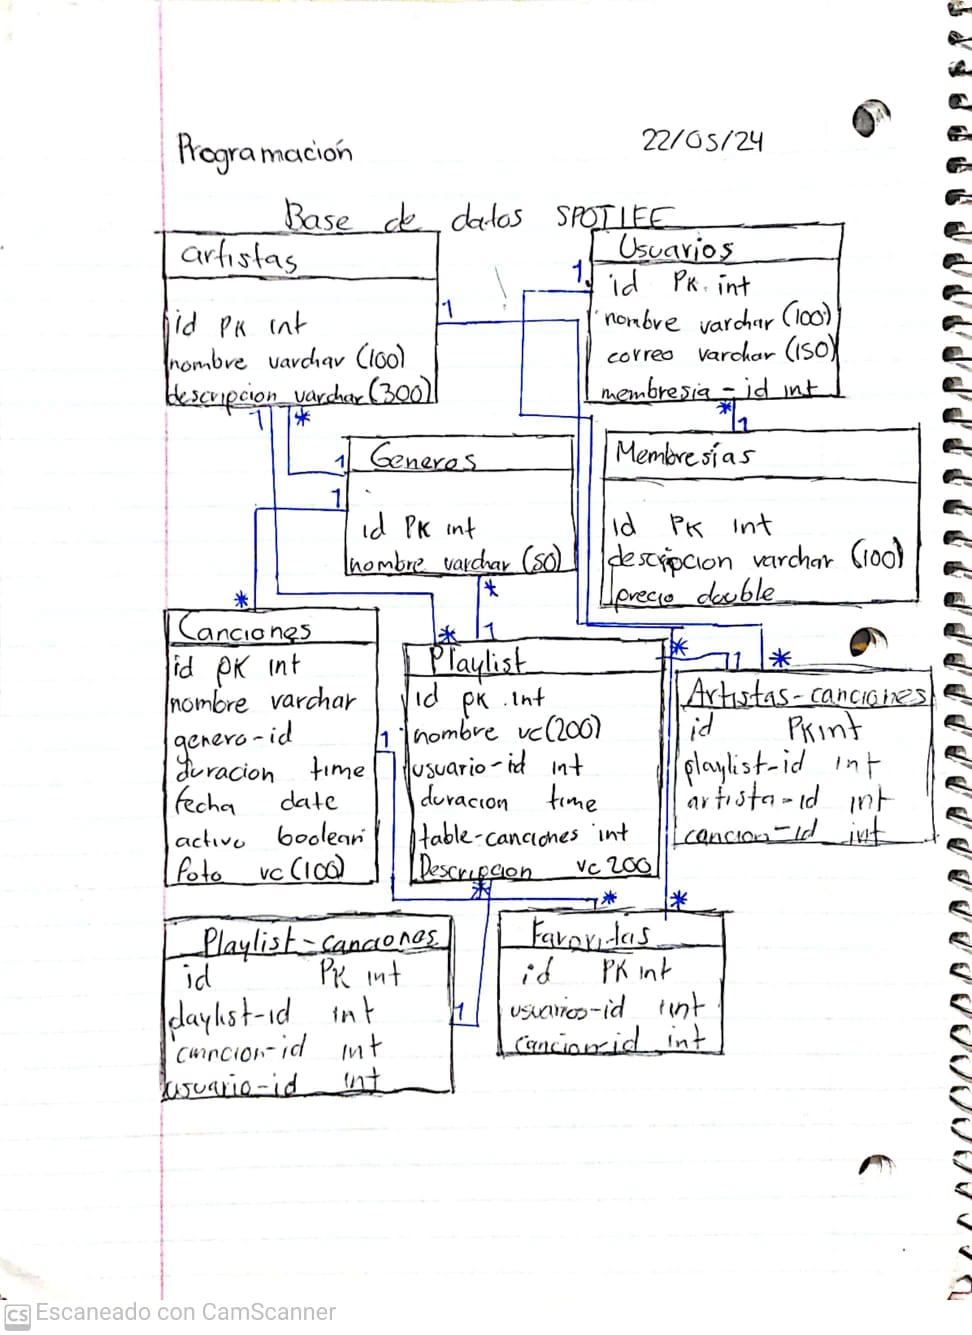 Programación
22/05/24
Base de datos SPOTIEE
artistas
id PK int
nombre varchar (100)
descripcion varchar (300)
Usuarios
id PK int
nombre varchar (100)
correo varchar (150)
membresia-id int
1
1
1
*
*
1
1
1
Generos
id PK int
nombre varchar (50)
Membresías
id PK int
descripcion varchar (100)
precio double
*
*
1
*
Canciones
id PK int
nombre varchar
genero-id
duracion time
fecha date
activo boolean
foto vc (100)
1
Playlist
id PK int
nombre vc (200)
usuario-id int
duracion time
table-canciones int
Descripcion vc 200
*
1
*
Artistas-canciones
id PK int
playlist-id int
artista-id int
cancion-id int
*
*
*
Playlist-canciones
id PK int
playlist-id int
cancion-id int
usuario-id int
1
Favoritas
id PK int
usuarios-id int
cancion-id int
CS Escaneado con CamScanner